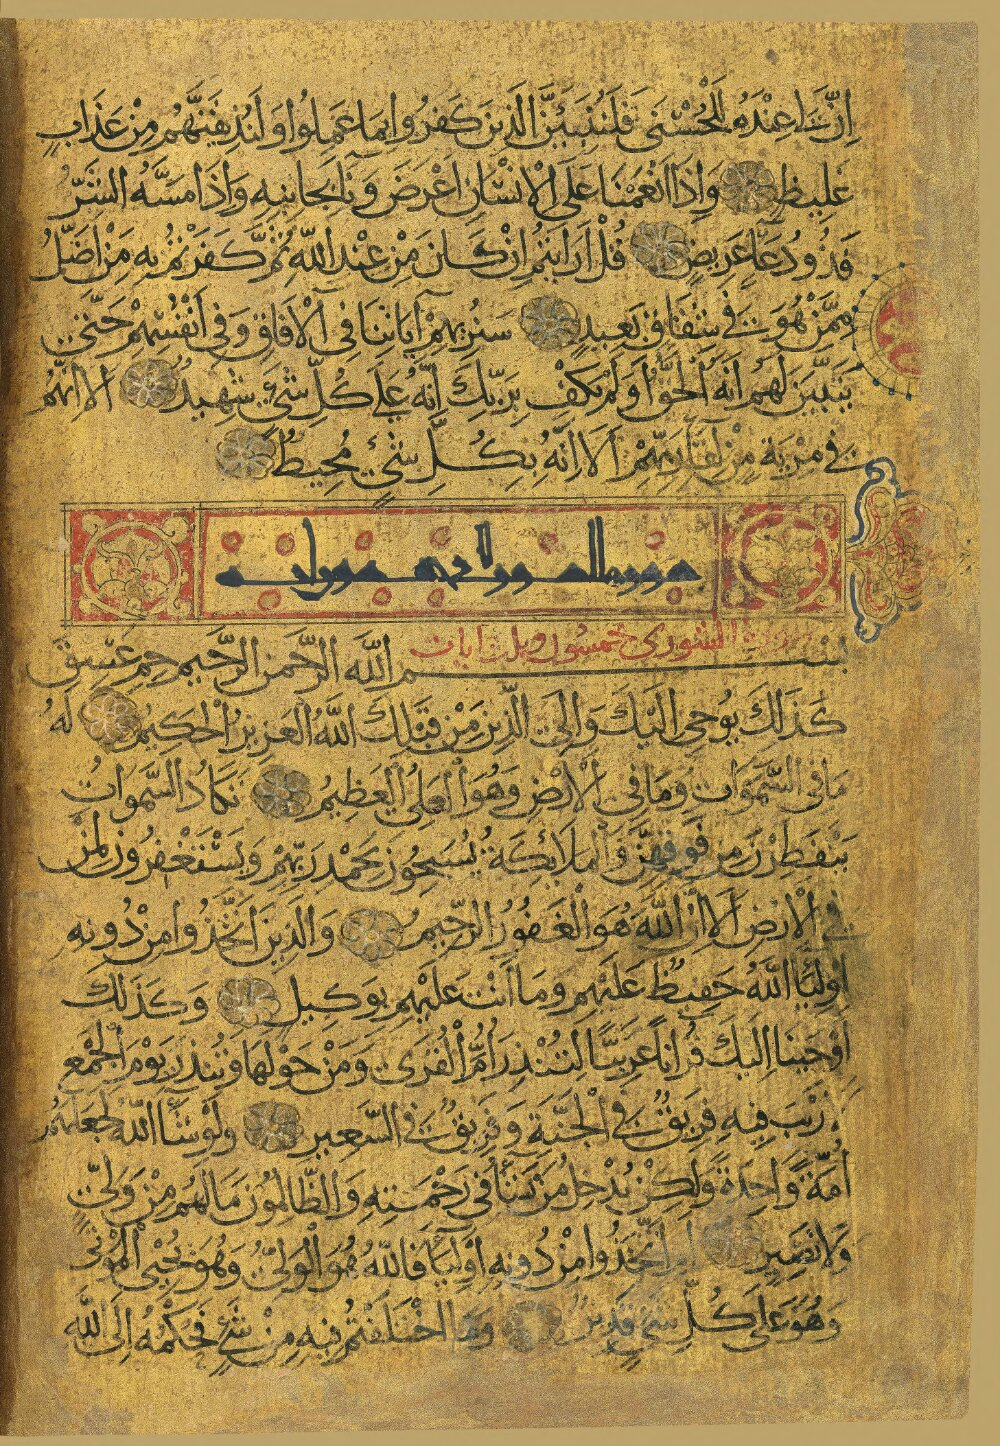 اِنَّ لِي عِنْدَهُ لَلْحُسْنَى فَلَنُنَبِّئَنَّ الَّذِينَ كَفَرُوا بِمَا عَمِلُوا وَلَنُذِيقَنَّهُمْ مِنْ عَذَابٍ
غَلِيظٍ وَاِذَا اَنْعَمْنَا عَلَى الْاِنْسَانِ اَعْرَضَ وَنَآ بِجَانِبِهِ وَاِذَا مَسَّهُ الشَّرُّ
فَذُو دُعَآءٍ عَرِيضٍ قُلْ اَرَايْتُمْ اِنْ كَانَ مِنْ عِنْدِ اللّٰهِ ثُمَّ كَفَرْتُمْ بِهِ مَنْ اَضَلُّ
مِمَّنْ هُوَ فِي شِقَاقٍ بَعِيدٍ سَنُرِيهِمْ آيَاتِنَا فِي الْآفَاقِ وَفِي اَنْفُسِهِمْ حَتَّى
يَتَبَيَّنَ لَهُمْ اَنَّهُ الْحَقُّ اَوَلَمْ يَكْفِ بِرَبِّكَ اَنَّهُ عَلَى كُلِّ شَيْءٍ شَهِيدٌ اَلَا اِنَّهُمْ
فِي مِرْيَةٍ مِنْ لِقَآءِ رَبِّهِمْ اَلَا اِنَّهُ بِكُلِّ شَيْءٍ مُحِيطٌ
سورة الشورى خمسون وثلث ايات
بسم اللّٰه الرَّحْمٰنِ الرَّحِيمِ حٰمٓ عٓسٓقٓ
كَذَلِكَ يُوحِي اِلَيْكَ وَاِلَى الَّذِينَ مِنْ قَبْلِكَ اللّٰهُ الْعَزِيزُ الْحَكِيمُ لَهُ
مَا فِي السَّمٰوَاتِ وَمَا فِي الْاَرْضِ وَهُوَ الْعَلِيُّ الْعَظِيمُ تَكَادُ السَّمٰوَاتُ
يَتَفَطَّرْنَ مِنْ فَوْقِهِنَّ وَالْمَلَائِكَةُ يُسَبِّحُونَ بِحَمْدِ رَبِّهِمْ وَيَسْتَغْفِرُونَ لِمَنْ
فِي الْاَرْضِ اَلَا اِنَّ اللّٰهَ هُوَ الْغَفُورُ الرَّحِيمُ وَالَّذِينَ اتَّخَذُوا مِنْ دُونِهِ
اَوْلِيَآءَ اللّٰهُ حَفِيظٌ عَلَيْهِمْ وَمَا اَنْتَ عَلَيْهِمْ بِوَكِيلٍ وَكَذَلِكَ
اَوْحَيْنَا اِلَيْكَ قُرْآنًا عَرَبِيًّا لِتُنْذِرَ اُمَّ الْقُرَى وَمَنْ حَوْلَهَا وَتُنْذِرَ يَوْمَ الْجَمْعِ
لَا رَيْبَ فِيهِ فَرِيقٌ فِي الْجَنَّةِ وَفَرِيقٌ فِي السَّعِيرِ وَلَوْ شَآءَ اللّٰهُ لَجَعَلَهُمْ
اُمَّةً وَاحِدَةً وَلَكِنْ يُدْخِلُ مَنْ يَشَآءُ فِي رَحْمَتِهِ وَالظَّالِمُونَ مَا لَهُمْ مِنْ وَلِيٍّ
وَلَا نَصِيرٍ اَمِ اتَّخَذُوا مِنْ دُونِهِ اَوْلِيَآءَ فَاللّٰهُ هُوَ الْوَلِيُّ وَهُوَ يُحْيِي الْمَوْتَى
وَهُوَ عَلَى كُلِّ شَيْءٍ قَدِيرٌ وَمَا اخْتَلَفْتُمْ فِيهِ مِنْ شَيْءٍ فَحُكْمُهُ اِلَى اللّٰهِ